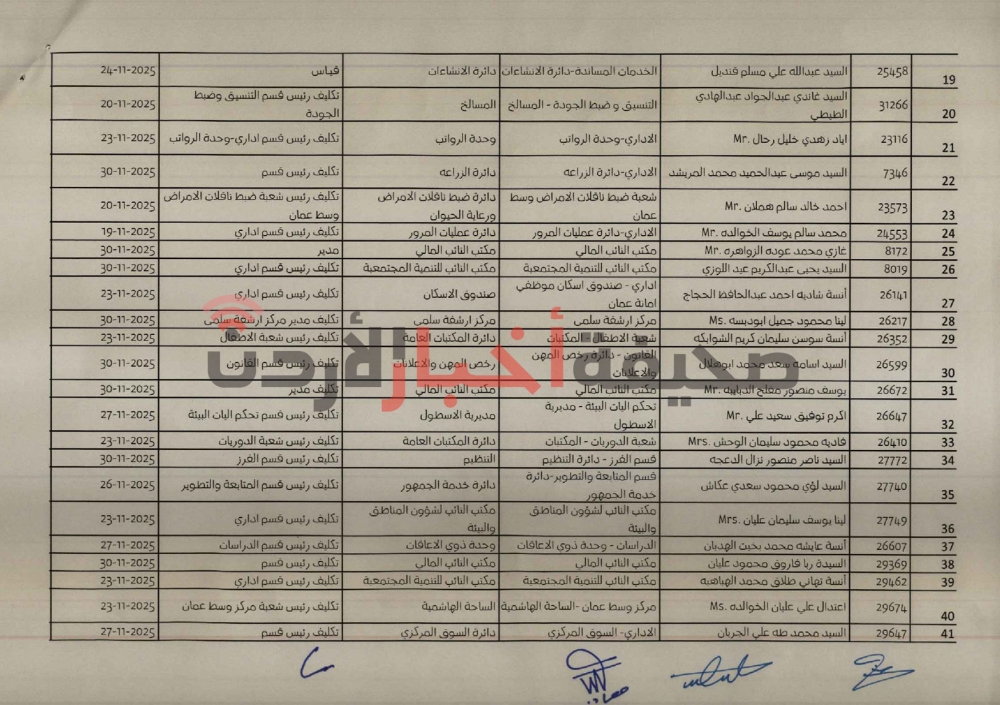 19 25458 السيد عبدالله علي مسلم قنديل الخدمات المساندة-دائرة الانشاءات دائرة الانشاءات قياس 24-11-2025
20 31266 السيد غاندي عبدالجواد عبدالهادي الطيطي التنسيق و ضبط الجودة - المسالخ المسالخ تكليف رئيس قسم التنسيق وضبط الجودة 20-11-2025
21 23116 اياد زهدي خليل رحال Mr. الاداري-وحدة الرواتب وحدة الرواتب تكليف رئيس قسم اداري-وحدة الرواتب 23-11-2025
22 7346 السيد موسى عبدالحميد محمد المريشد الاداري-دائرة الزراعه دائرة الزراعه تكليف رئيس قسم 30-11-2025
23 23573 احمد خالد سالم هملان Mr. شعبة ضبط ناقلات الامراض وسط عمان دائرة ضبط ناقلات الامراض ورعاية الحيوان تكليف رئيس شعبة ضبط ناقلات الامراض وسط عمان 20-11-2025
24 24553 محمد سالم يوسف الخوالده Mr. الاداري-دائرة عمليات المرور دائرة عمليات المرور تكليف رئيس قسم اداري 19-11-2025
25 8172 غازي محمد عوده الزواهره Mr. مكتب النائب المالي مكتب النائب المالي مدير 30-11-2025
26 8019 السيد يحيى عبدالكريم عبد اللوزي مكتب النائب للتنمية المجتمعية مكتب النائب للتنمية المجتمعية تكليف رئيس قسم اداري 30-11-2025
27 26141 آنسة شاديه احمد عبدالحافظ الحجاج اداري - صندوق اسكان موظفي امانة عمان صندوق الاسكان تكليف رئيس قسم اداري 23-11-2025
28 26217 لينا محمود جميل ابودبسه Ms. مركز ارشفة سلمى مركز ارشفة سلمى تكليف مدير مركز ارشفة سلمى 30-11-2025
29 26352 آنسة سوسن سليمان كريم الشوابكه شعبة الاطفال - المكتبات دائرة المكتبات العامة تكليف رئيس شعبة الاطفال 23-11-2025
30 26599 السيد اسامه سعد محمد ابوهلال القانون - دائرة رخص المهن والاعلانات رخص المهن والاعلانات تكليف رئيس قسم القانون 30-11-2025
31 26672 يوسف منصور مفلح الدبايبه Mr. مكتب النائب المالي مكتب النائب المالي تكليف مدير 30-11-2025
32 26647 اكرم توفيق سعيد علي Mr. تحكم اليات البيئة - مديرية الاسطول مديرية الاسطول تكليف رئيس قسم تحكم اليات البيئة 27-11-2025
33 26410 فاديه محمود سليمان الوحش Mrs. شعبة الدوريات - المكتبات دائرة المكتبات العامة تكليف رئيس شعبة الدوريات 23-11-2025
34 27772 السيد ناصر منصور نزال الدعجه قسم الفرز - دائرة التنظيم التنظيم تكليف رئيس قسم الفرز 30-11-2025
35 27740 السيد لؤي محمود سعدي عكاش قسم المتابعة والتطوير-دائرة خدمة الجمهور دائرة خدمة الجمهور تكليف رئيس قسم المتابعة والتطوير 26-11-2025
36 27749 لينا يوسف سليمان عليان Mrs. مكتب النائب لشؤون المناطق والبيئة مكتب النائب لشؤون المناطق والبيئة تكليف رئيس قسم اداري 23-11-2025
37 26607 آنسة عايشه محمد بخيت الهدبان الدراسات - وحدة ذوي الاعاقات وحدة ذوي الاعاقات تكليف رئيس قسم الدراسات 27-11-2025
38 29369 السيدة ربا فاروق محمود عليان مكتب النائب المالي مكتب النائب المالي تكليف رئيس قسم 30-11-2025
39 29462 آنسة تهاني طلاق محمد الهباهبه مكتب النائب للتنمية المجتمعية مكتب النائب للتنمية المجتمعية تكليف رئيس قسم اداري 23-11-2025
40 29674 اعتدال علي عليان الخوالده Ms. مركز وسط عمان -الساحة الهاشمية الساحة الهاشمية تكليف رئيس شعبة مركز وسط عمان 23-11-2025
41 29647 السيد محمد طه علي الجربان الاداري- السوق المركزي دائرة السوق المركزي تكليف رئيس قسم 27-11-2025
صحيفة أخبار الأردن